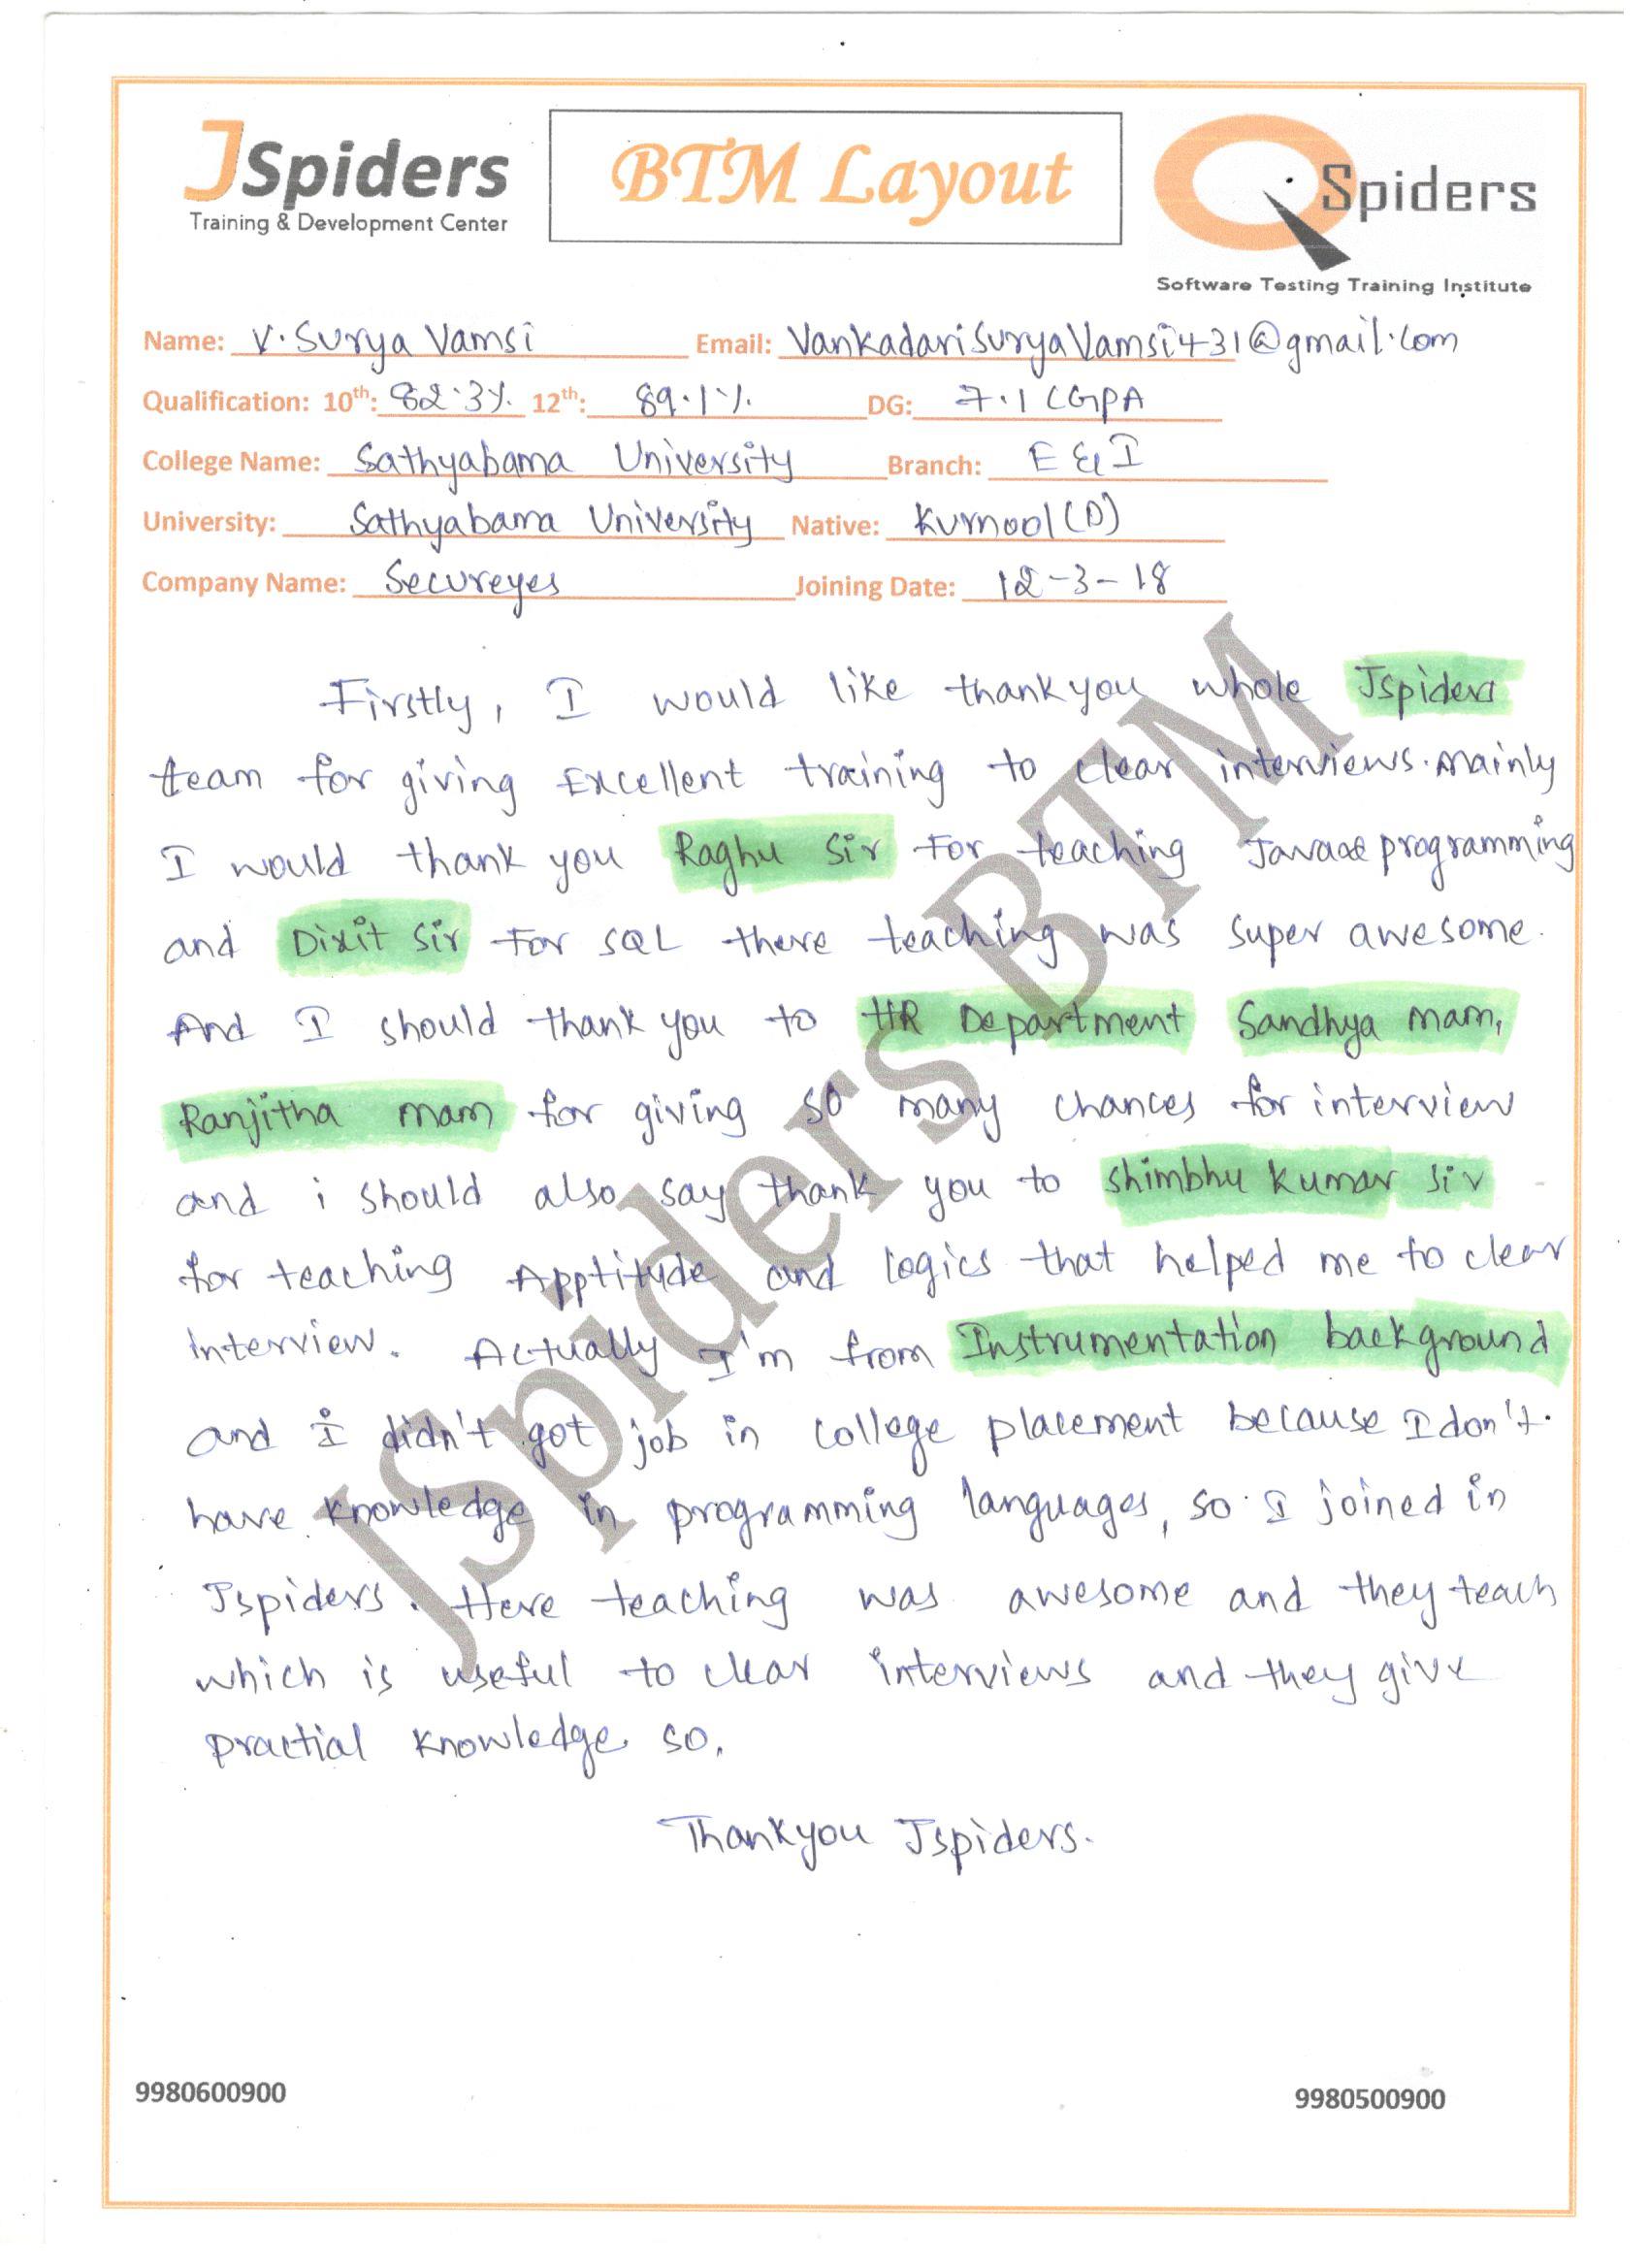 JSpiders
Training & Development Center
BTM Layout
QSpiders
Software Testing Training Institute
Name: V. Surya Vamsi Email: VankadariSuryaVamsi431@gmail.com
Qualification: 10th: 82.3% 12th: 89.1% DG: 7.1 CGPA
College Name: Sathyabama University Branch: E & I
University: Sathyabama University Native: Kurnool(D)
Company Name: Secureyes Joining Date: 12-3-18
Firstly, I would like thankyou whole Jspiders
team for giving Excellent training to clear interviews. mainly
I would thank you Raghu Sir For teaching Java programming
and Dixit Sir For SQL there teaching was super awesome.
And I should thank you to HR Department Sandhya mam,
Ranjitha mam for giving so many chances for interview
and i should also say thank you to Shimbhu Kumar Sir
for teaching Apptitude and logics that helped me to clear
interview. Actually I'm from Instrumentation background
and i didn't got job in college placement because I don't
have knowledge in programming languages, so I joined in
Jspiders. Here teaching was awesome and they teach
which is useful to clear interviews and they give
practial knowledge so,
Thankyou Jspiders.
JSpiders BTM
9980600900 9980500900